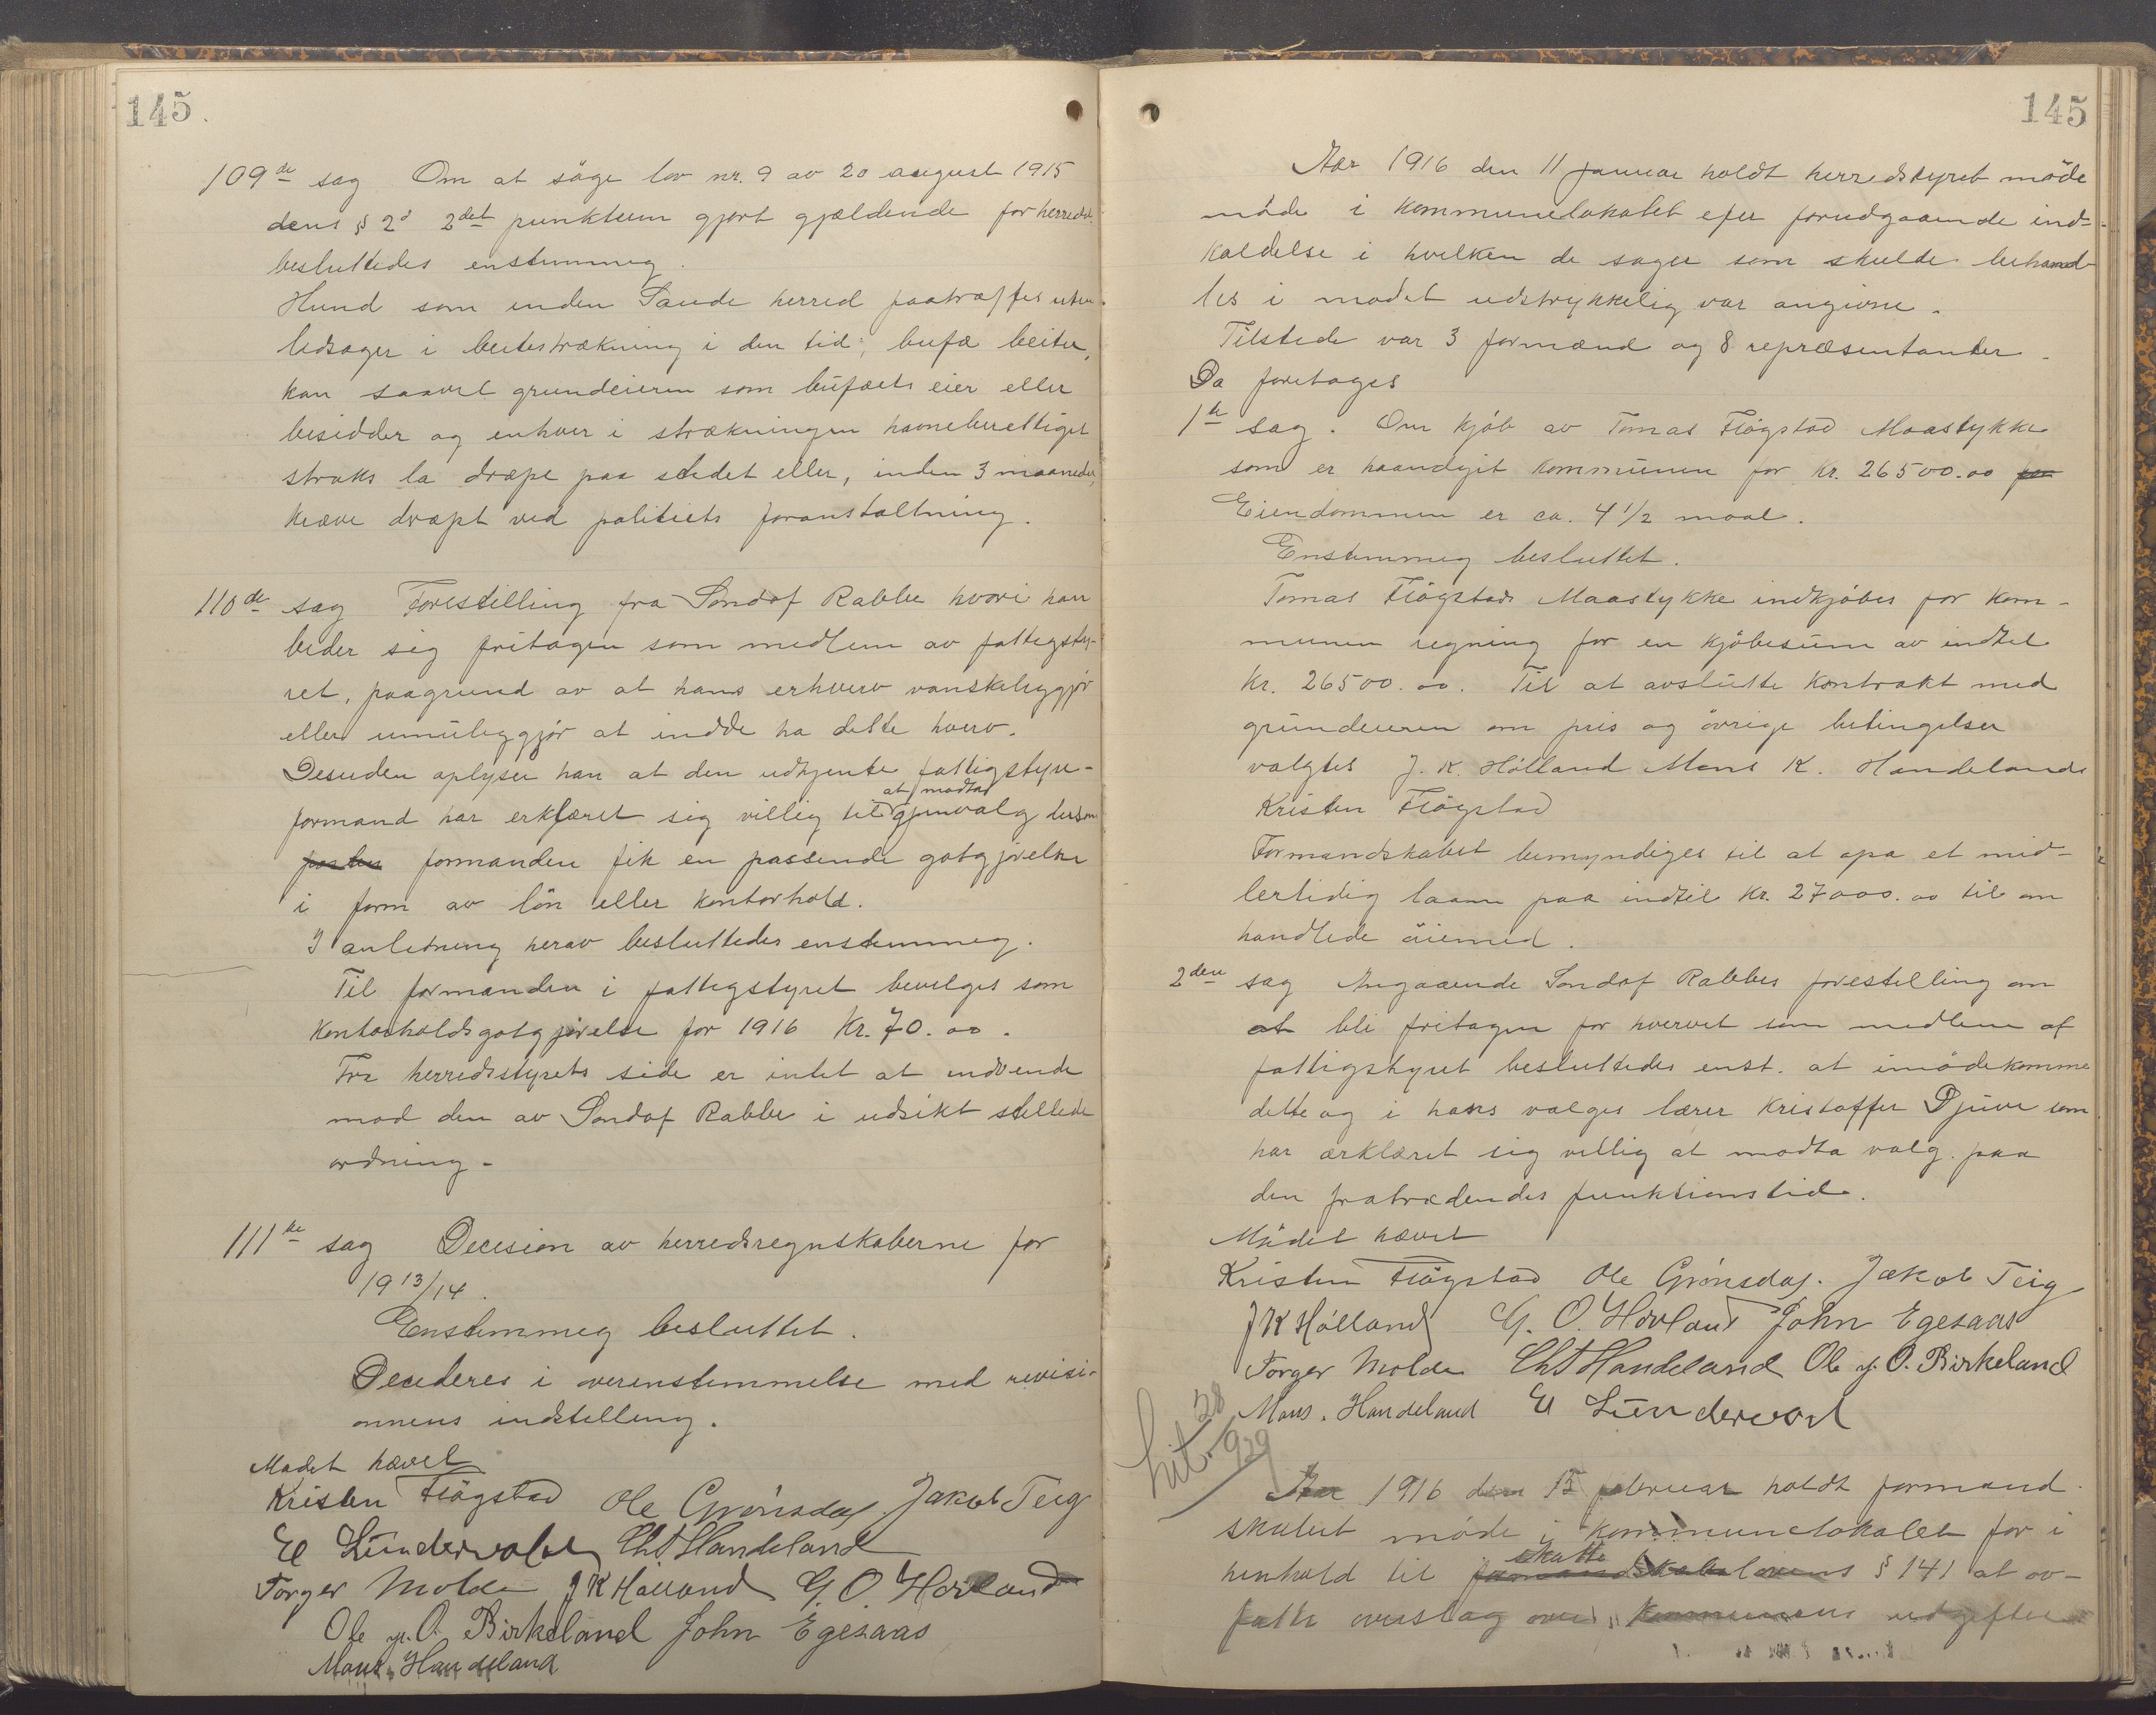 145.
109de sag Om at søge lov nr. 9 av 20 august 1915
dens § 2s 2det punktum gjort gjældende for herredet.
besluttedes enstemmig.
Hund som inden Saude herred paatræffes uten
ledsager i beitestrækning i den tid, bufæ beiter,
kan saavel grundeieren som bufæets eier eller
besidder og enhver i strækningen havneberettiget
straks la dræpe paa stedet eller, inden 3 maaneder,
kræve dræpt ved politiets foranstaltning.
110de sag Forestilling fra Sondof Rabbe hvori han
beder sig fritagen som medlem av fattigsty-
ret, paagrund av at hans erhverv vanskeliggjør
eller umuliggjør at indde ha dette hverv.
Desuden oplyser han at den udtjente fattigstyre-
formand har erklæret sig villig til at modta gjenvalg dersom
formanden fik en passende gotgjørelse
i form av løn eller kontorhold.
I anledning herav besluttedes enstemmig.
Til formanden i fattigstyret bevilges som
kontorholdsgotgjørelse for 1916 Kr. 70.00.
Fra herredsstyrets side er intet at indvende
mod den av Sondof Rabbe i udsikt stillede
ordning.
111te sag Decision av herredsregnskaberne for
1913/14.
Enstemmig besluttet.
Decideres i overenstemmelse med revisi-
onnens indstilling.
Mødet hævet
Kristen Fløgstad Ole Grønsdal. Jakob Teig
El Lündervold Chr Handeland
Torger Molde J K Hølland G. O. Hovland
Ole g. O. Birkeland John Egesaas
Mans. Handeland
145
Aar 1916 den 11 Januar holdt herredstyret møde
møde i kommunelokalet efter forudgaaende ind-
kaldelse i hvilken de sager som skulde behand-
les i mødet udstrykkelig var angivne.
Tilstede var 3 formænd og 8 repræsentanter.
Da foretages
1ste sag. Om kjøb av Tomas Fløgstad Maastykke
som er haandgit kommunen for Kr. 26500.00 for
Eiendommen er ca. 4 1/2 maal.
Enstemmig besluttet.
Tomas Fløgstads Maastykke indkjøbes for kom-
munen regning for en kjøbesum av indtil
Kr. 26500.00. Til at avslutte kontrakt med
grundeieren om pris og øvrige betingelser
valgtes J. K. Hølland Mons K. Handeland
Kristen Fløgstad
Formandskabet bemyndiges til at opta et mid-
lertidig laan paa indtil Kr. 27000.00 til om
handlede øiemed.
2den sag Angaaende Sondof Rabbes forestelling om
at bli fritagen for hvervet som medlem af
fattigstyret besluttedes enst. at imødekomme
dette og i hans valges lærer Kristoffer Djuve som
har ærklæret sig villig at modta valg. paa
den fratrædendes funktionstid.
Mødet hævet
Kristen Fløgstad Ole Grønsdal. Jakob Teig
J K Hølland G. O. Hovland John Egesaas
Torger Molde Chr Handeland Ole g. O. Birkeland
Mans. Handeland El Lündervold
hit. 28/9 29
Aar 1916 den 15 februar holdt formand
skabet møde i kommunelokalet for i
henhold til formandskabslovens skatte § 141 at av-
fatte overslag over kommunens udgifter